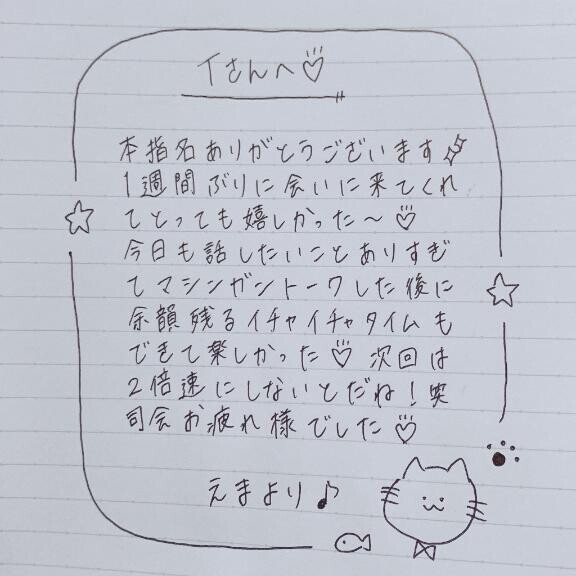 Tさんへ♡
本指名ありがとうございます
1週間ぶりに会いに来てくれ
てとっても嬉しかった〜♡
今日も話したいことありすぎ
てマシンガントークした後に
余韻残るイチャイチャタイムも
できて楽しかった♡ 次回は
2倍速にしないとだね!笑
司会お疲れ様でした♡
えまより♪